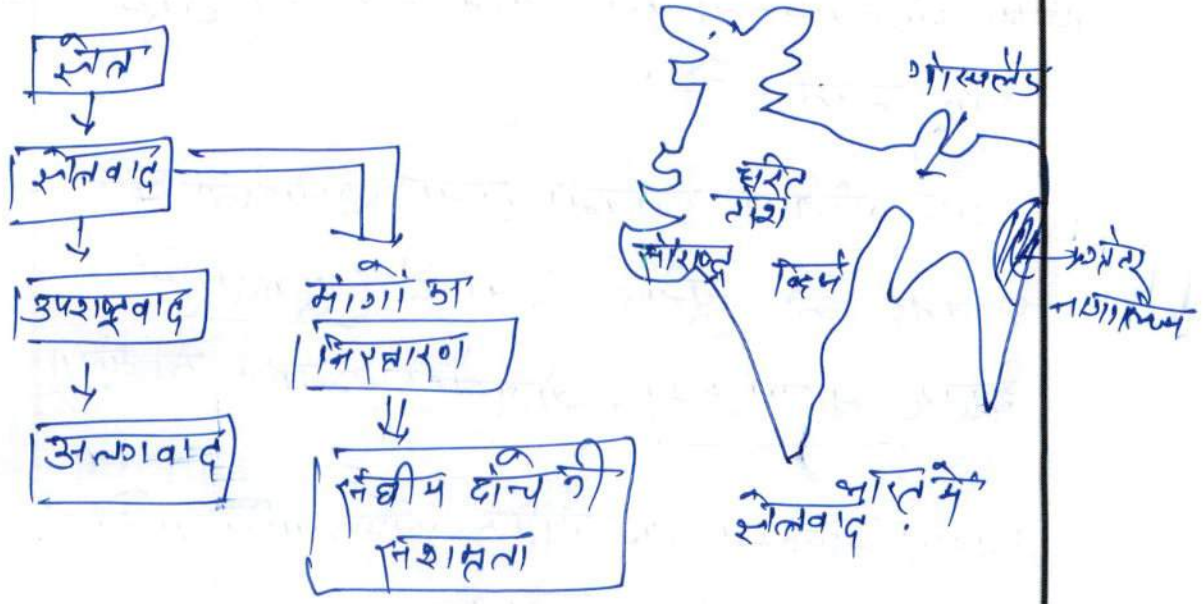 क्षेत्र
क्षेत्रवाद
उपराष्ट्रवाद
अलगाववाद
मांगों का
निस्तारण
संघीय ढांचे की
सशक्तता
गोरखालैंड
हरित
सौराष्ट्र
विदर्भ
ग्रेटर
भारत में
क्षेत्रवाद